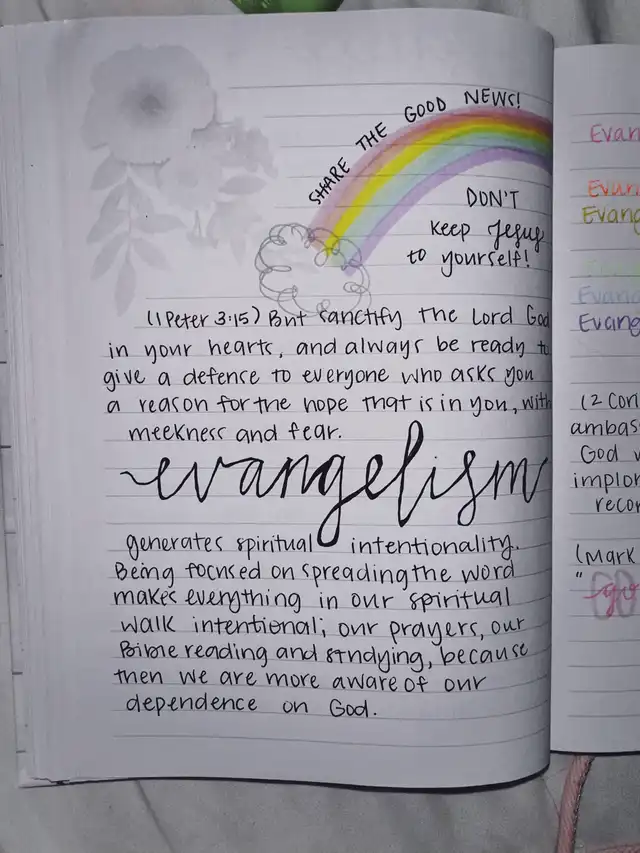 SHARE THE GOOD NEWS!
DON'T
keep Jesus
to yourself!
(1 Peter 3:15) But sanctify the Lord God
in your hearts, and always be ready to
give a defense to everyone who asks you
a reason for the hope that is in you, with
meekness and fear.
evangelism
generates spiritual intentionality.
Being focused on spreading the word
makes everything in our spiritual
walk intentional; our prayers, our
Bible reading and studying, because
then we are more aware of our
dependence on God.
Evan
Evan
Evang
Evan
Evang
(2 Cori
ambass
God w
implor
recon
(Mark
"go